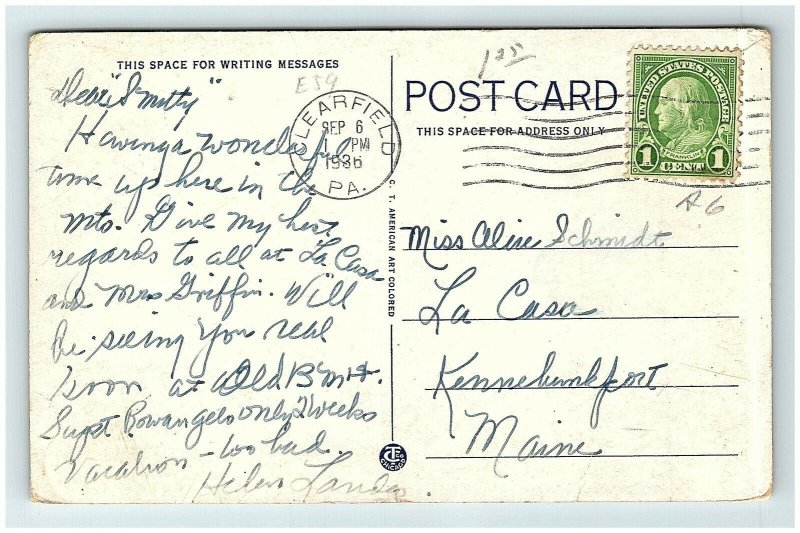 THIS SPACE FOR WRITING MESSAGES
E59
Dear "Smitty"
Having a wonderful
time up here in the
mts. Give my best
regards to all at La Casa
and Mrs Griffin. Will
be seeing you real
soon at Old B
Supt. only 2 weeks
vacation – too bad.
Helen
CLEARFIELD
SEP 6
1 PM
1936
PA.
C. T. AMERICAN ART COLORED
CHICAGO
POST CARD
THIS SPACE FOR ADDRESS ONLY
UNITED STATES POSTAGE
FRANKLIN
1 CENT 1
Miss Aline Schmidt
La Casa
Kennebunkport
Maine